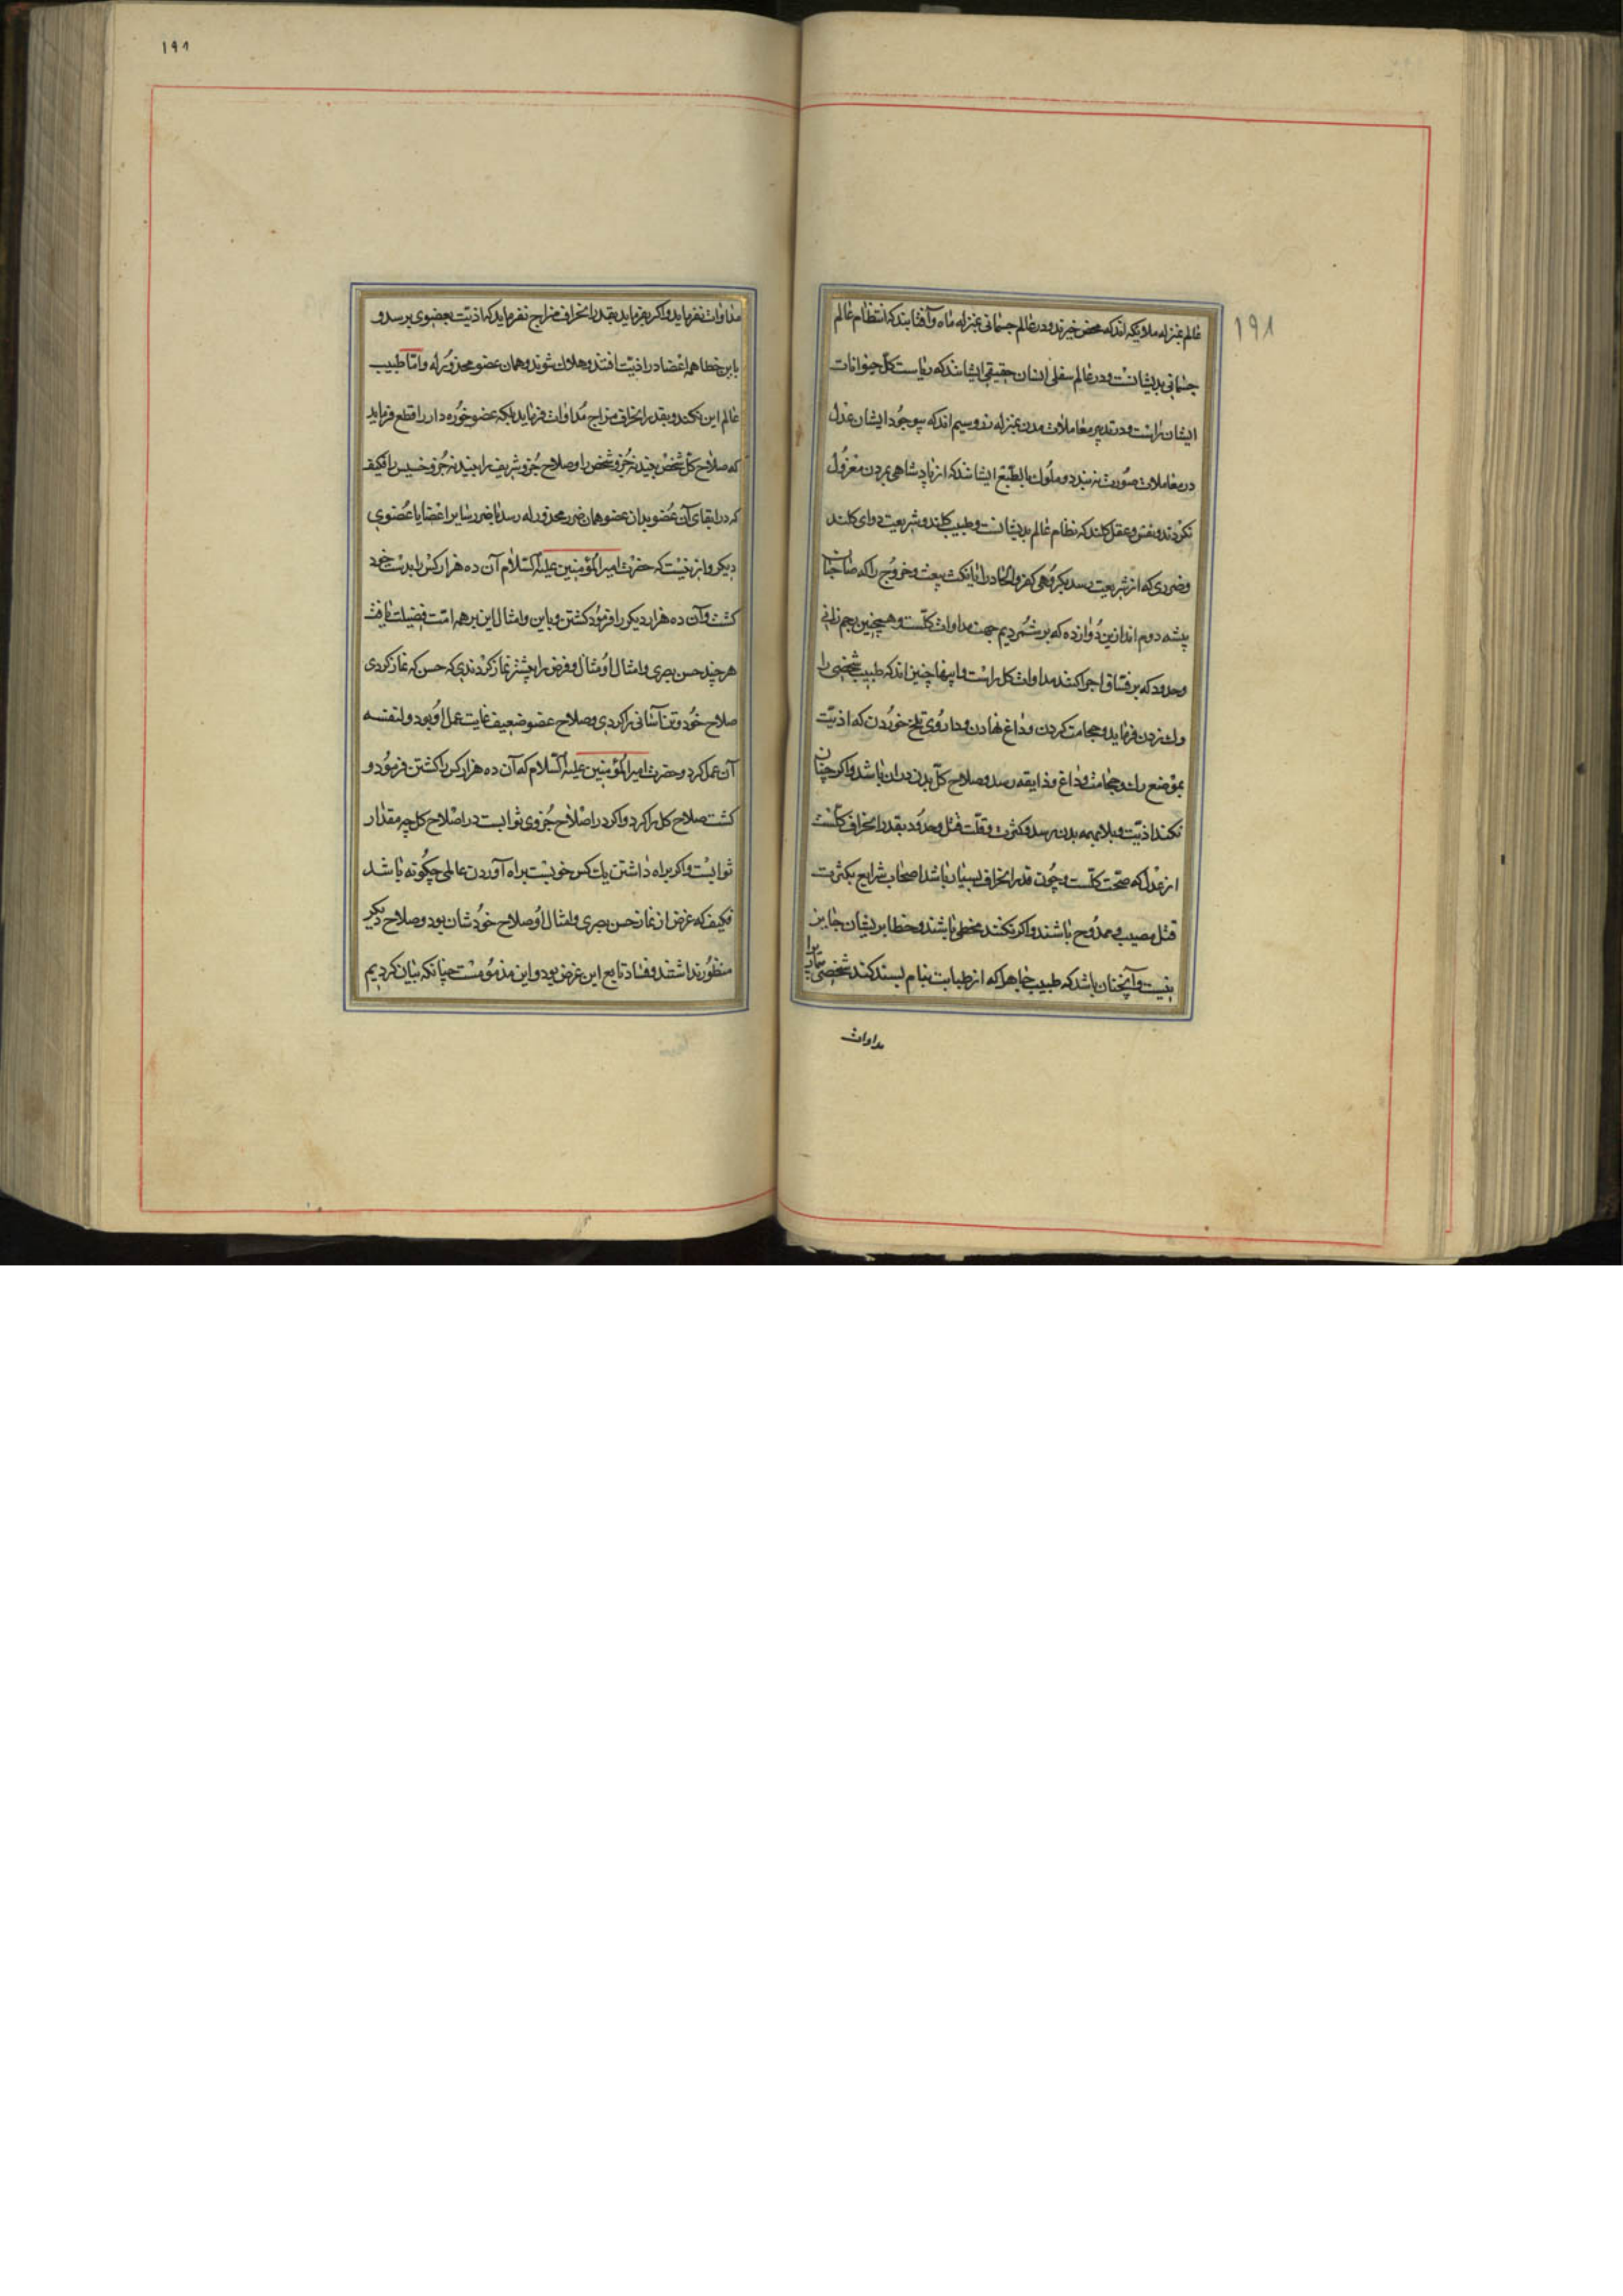 ۱۹۸
عالم بمنزله ملایکه اند که محض خیرند و در عالم جسمانی بمنزله ماه و آفتابند که انتظام عالم
جسمانی بدیشانست و در عالم سفلی انسان حقیقی ایشانند که ریاست کل حیوانات
ایشان راست و در تدبیر معاملات مدن بمنزله زر و سیم اند که بی وجود ایشان عدل
در معاملات صورت نه بندد و ملوک بالطبع ایشانند که از پادشاهی بمردن معزول
نکردند و نفس و عقل کلند که نظام عالم بدیشانست و طبیب کلند و شریعت دوای کلند
وضرری که از شریعت رسد بکروهی کفر و الحاد را یا نکث بیعت و خروج را که صاحبان
پیشه دوم اند ازین دوازده که برشمردیم جهت مداوات کلست و همچنین رجم زانی
وحدود که بر فساق اجرا کنند مداوات کل راست و اینها چنین اند که طبیب شخصی را
رک زدن فرماید و حجامت کردن و داغ نهادن و داروی تلخ خوردن که اذیت
بموضع رک و حجامت و داغ و ذایقه رسد و صلاح کل بدن در ان باشد و اکر چنان
نکند اذیت و بلا بهمه بدن رسد و کثرت و قلت قتل و حدود بقدر انحراف کلست
از عدل که صحت کلست و چون قدر انحراف بسیار باشد اصحاب شرایع بکثرت
قتل مصیب و ممدوح باشند و اکر نکنند مخطی باشند و خطا بر یشان جایز
نیست و آنچنان باشد که طبیب جاهل که از طبابت بنام بسند کند شخصی را
مداوات
۱۹۸
مداوات نفرماید و اکر بفرماید بقدر انحراف مزاج نفرماید که اذیت بعضوی برسد و
باین خطا همه اعضا در اذیت افتند و هلاک شوند و همان عضو محذور له و اما طبیب
عالم این نکند و بقدر انحراف مزاج مداوات فرماید بلکه عضو خوره دار را قطع فرماید
که صلاح کل شخص بیند نه جزو شخص را و صلاح جزو شریف را بیند نه جزو خسیس را فکیف
که در ابقای آن عضو بدان عضو همان ضرر محذور له رسد با ضرر سایر اعضا یا عضوی
دیکر و از ینست که حضرت امیر المؤمنین علیه السلام آن ده هزار کس را بدست خود
کشت و آن ده هزار دیکر را فرمود کشتن و باین و امثال این بر همه امت فضیلت یافت
هر چند حسن بصری و امثال او مثال و فرض را بیشتر نماز کردندی که حسن که نماز کردی
صلاح خود و تن آسانی را کردی و صلاح عضو ضعیف غایت عمل او بود و لنفسه
آن عمل کرد و حضرت امیر المؤمنین علیه السلام که آن ده هزار کس را کشتن فرمود و
کشت صلاح کل را کرد و اکر در اصلاح جزوی ثوابست در اصلاح کل چه مقدار
ثوابست و اکر براه داشتن یک کس خوبست براه آوردن عالمی چکونه باشد
فکیف که غرض از نماز حسن بصری و امثال او صلاح خودشان بود و صلاح دیکر
منظور نداشتند و فساد تابع این غرض بود و این مذمومست چنانکه بیان کردیم